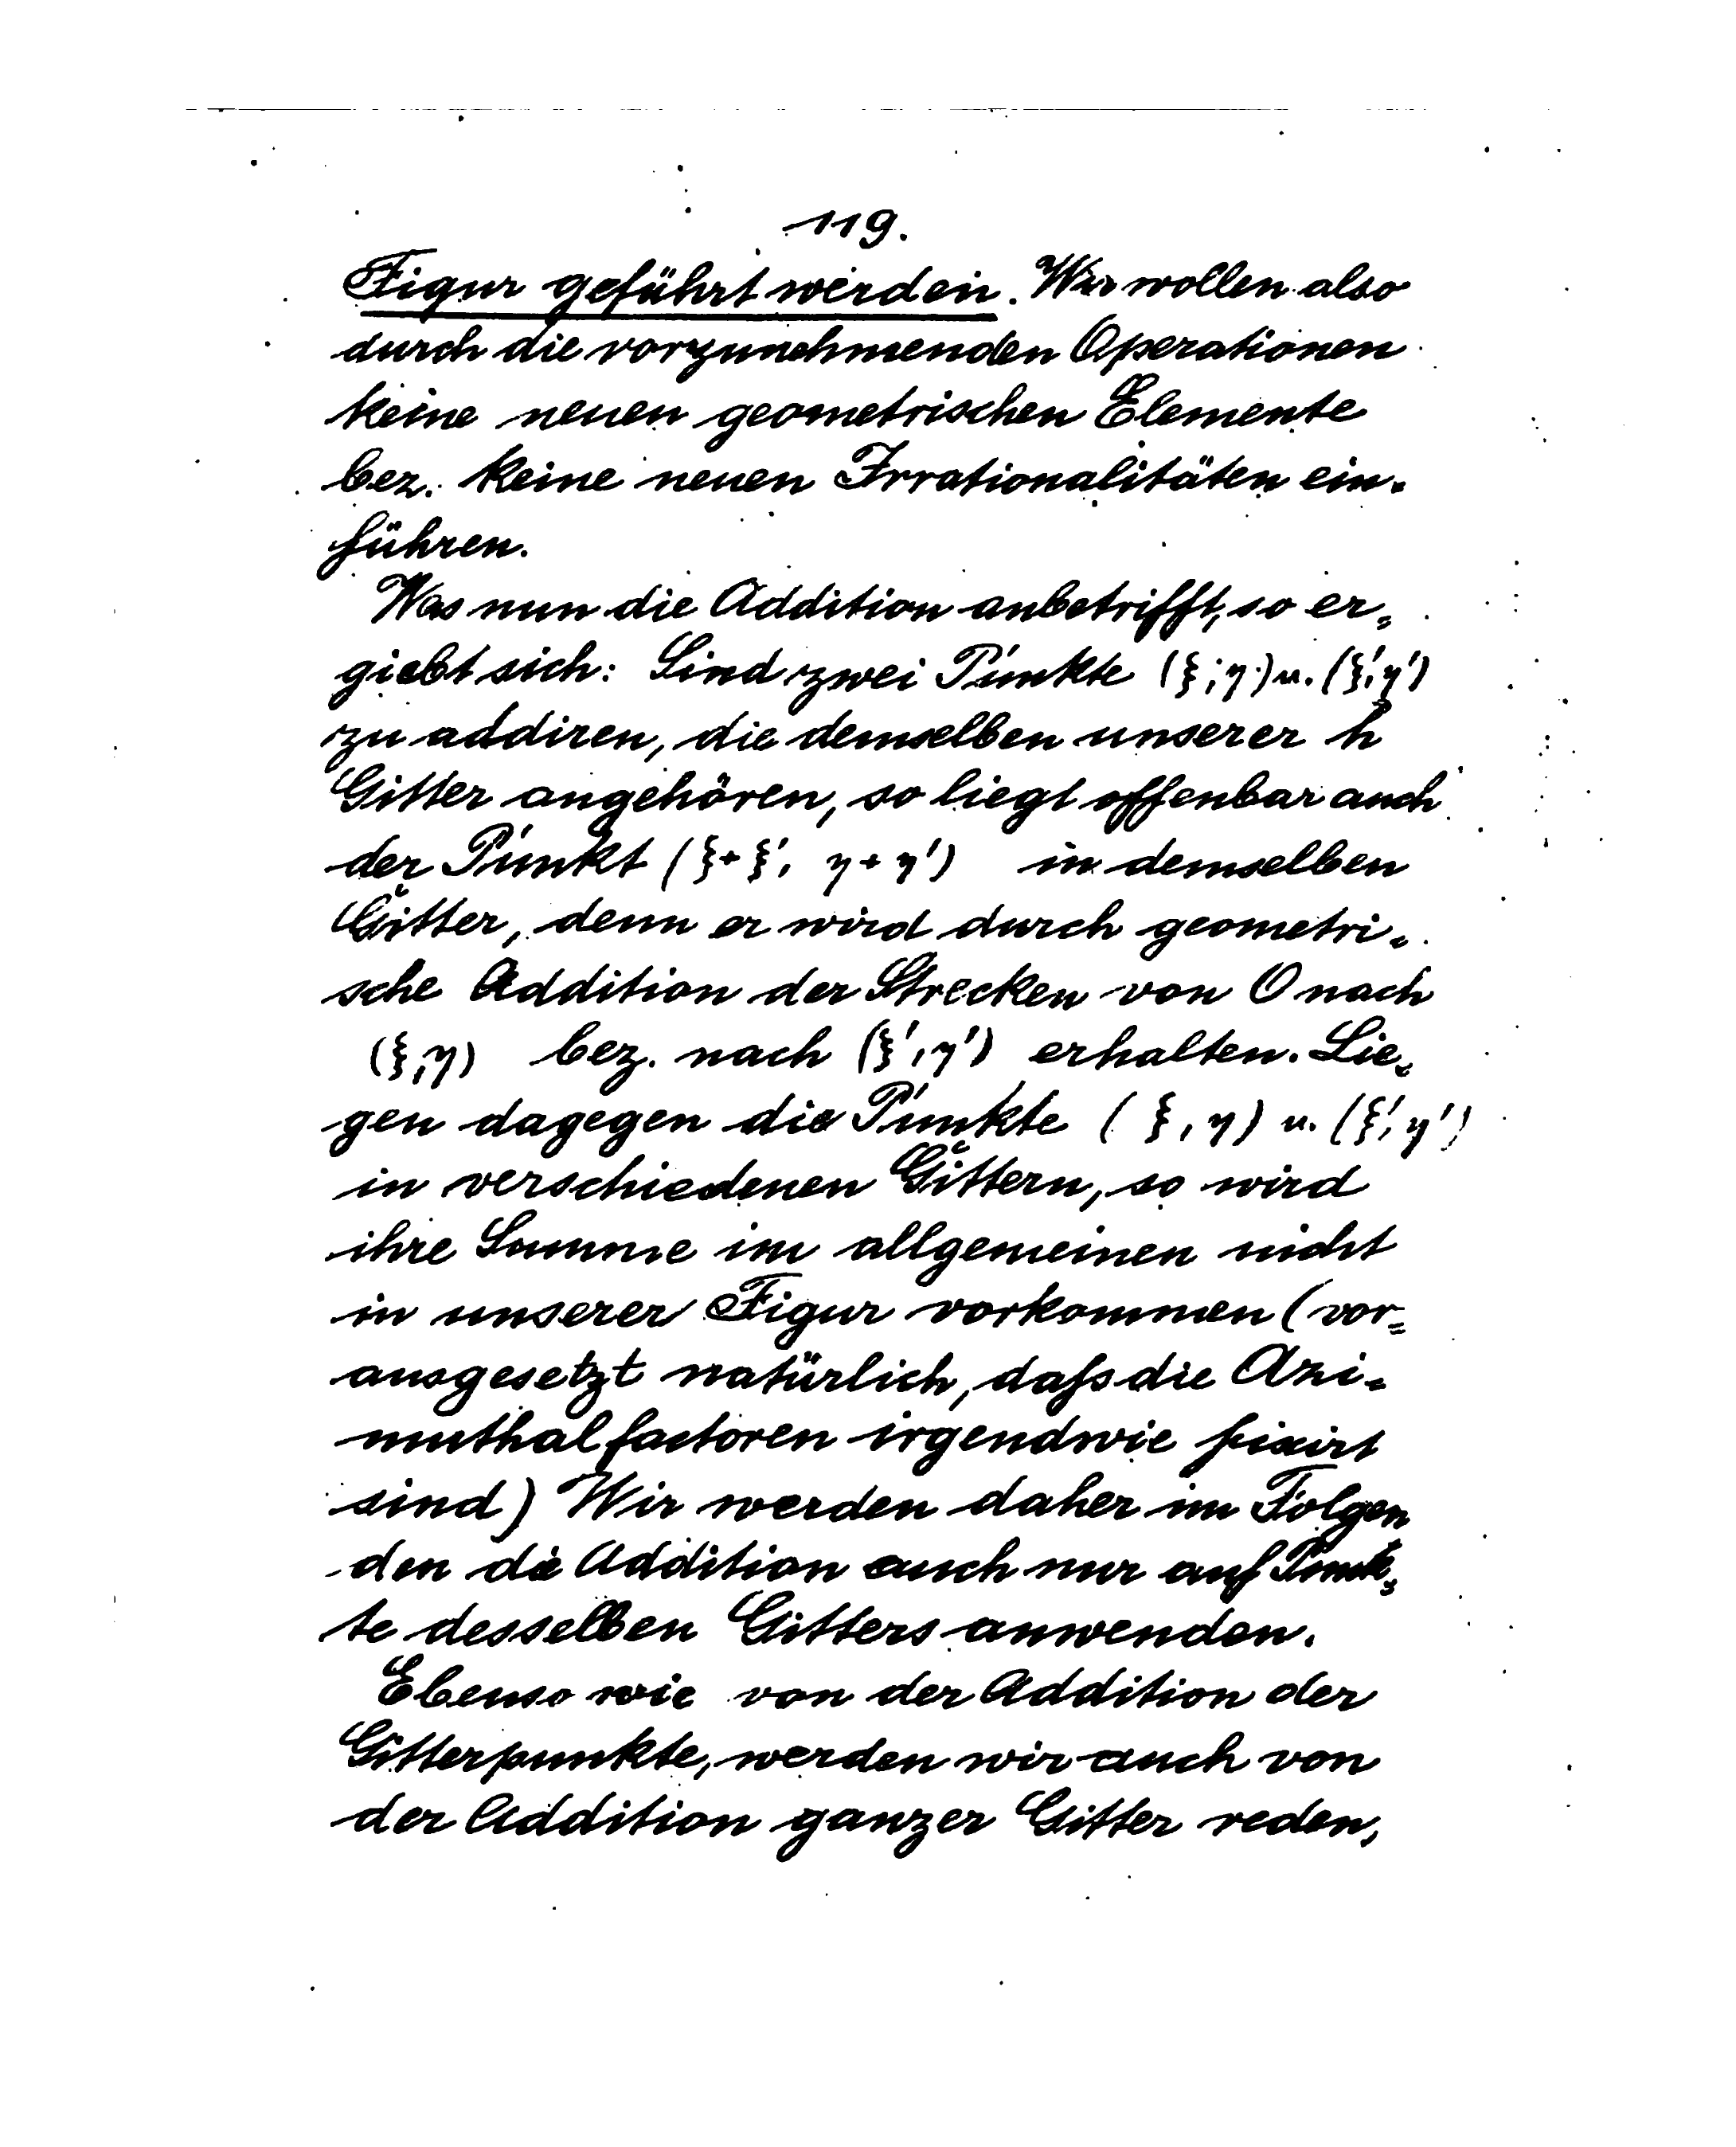 119.
Figur geführt werden. Wir wollen also
durch die vorzunehmenden Operationen
keine neuen geometrischen Elemente
bez. keine neuen Irrationalitäten ein=
führen.
Was nun die Addition anbetrifft, so er=
giebt sich: Sind zwei Punkte (ξ; η) u. (ξ', η')
zu addiren, die demselben unserer h
Gitter angehören, so liegt offenbar auch
der Punkt (ξ + ξ', η + η') in demselben
Gitter, denn er wird durch geometri=
sche Addition der Strecken von O nach
(ξ, η) bez. nach (ξ', η') erhalten. Lie=
gen dagegen die Punkte (ξ, η) u. (ξ', η')
in verschiedenen Gittern, so wird
ihre Summe im allgemeinen nicht
in unserer Figur vorkommen (vor=
ausgesetzt natürlich, daſs die Azi=
muthalfactoren irgendwie fixirt
sind) Wir werden daher im Folgen
den die Addition auch nur auf Punk=
te desselben Gitters anwenden.
Ebenso wie von der Addition der
Gitterpunkte, werden wir auch von
der Addition ganzer Gitter reden,